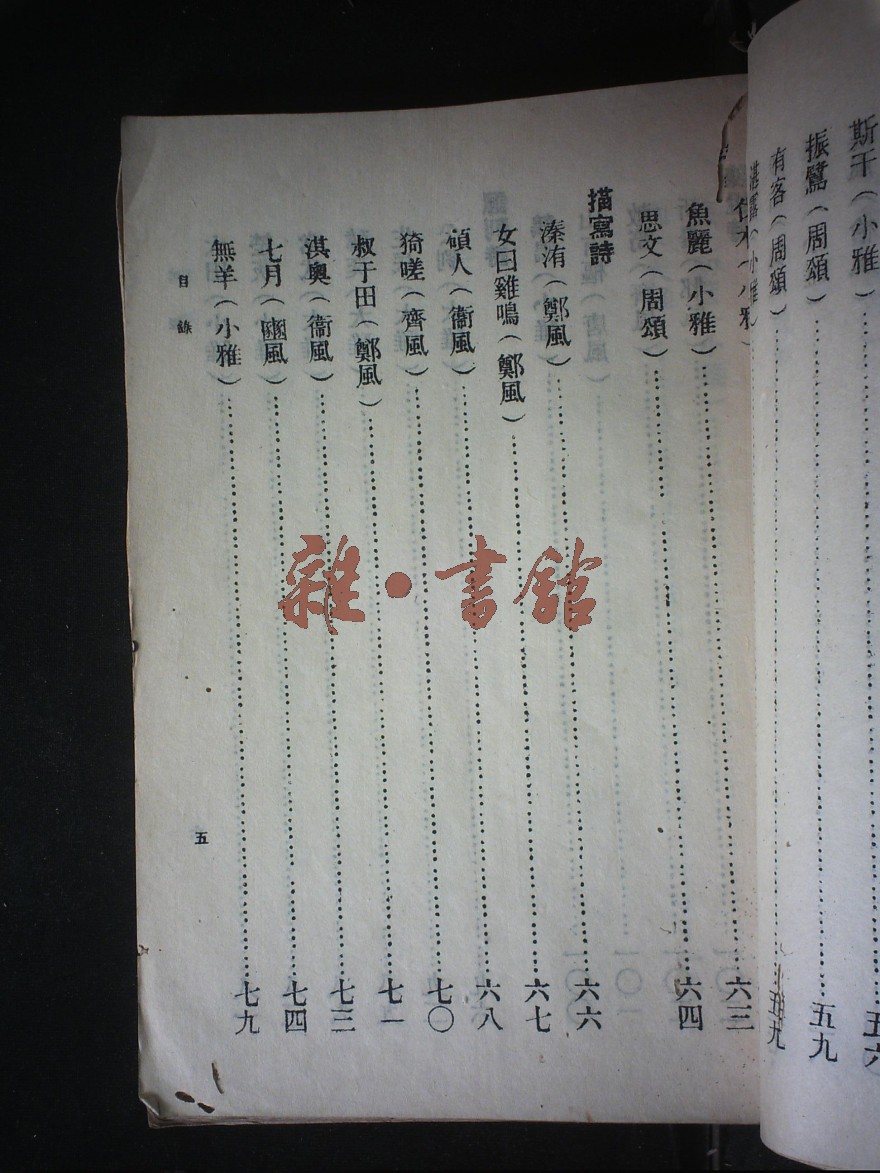 斯干(小雅)……五
振鷺(周頌)……五九
有客(周頌)……五九
湛露(小雅)
魚麗(小雅)……六三
思文(周頌)……六四
描寫詩
溱洧(鄭風)……六六
女曰雞鳴(鄭風)……六七
碩人(衞風)……六八
猗嗟(齊風)……七〇
叔于田(鄭風)……七一
淇奧(衞風)……七三
七月(豳風)……七四
無羊(小雅)……七九
目錄
五
雜·書舘